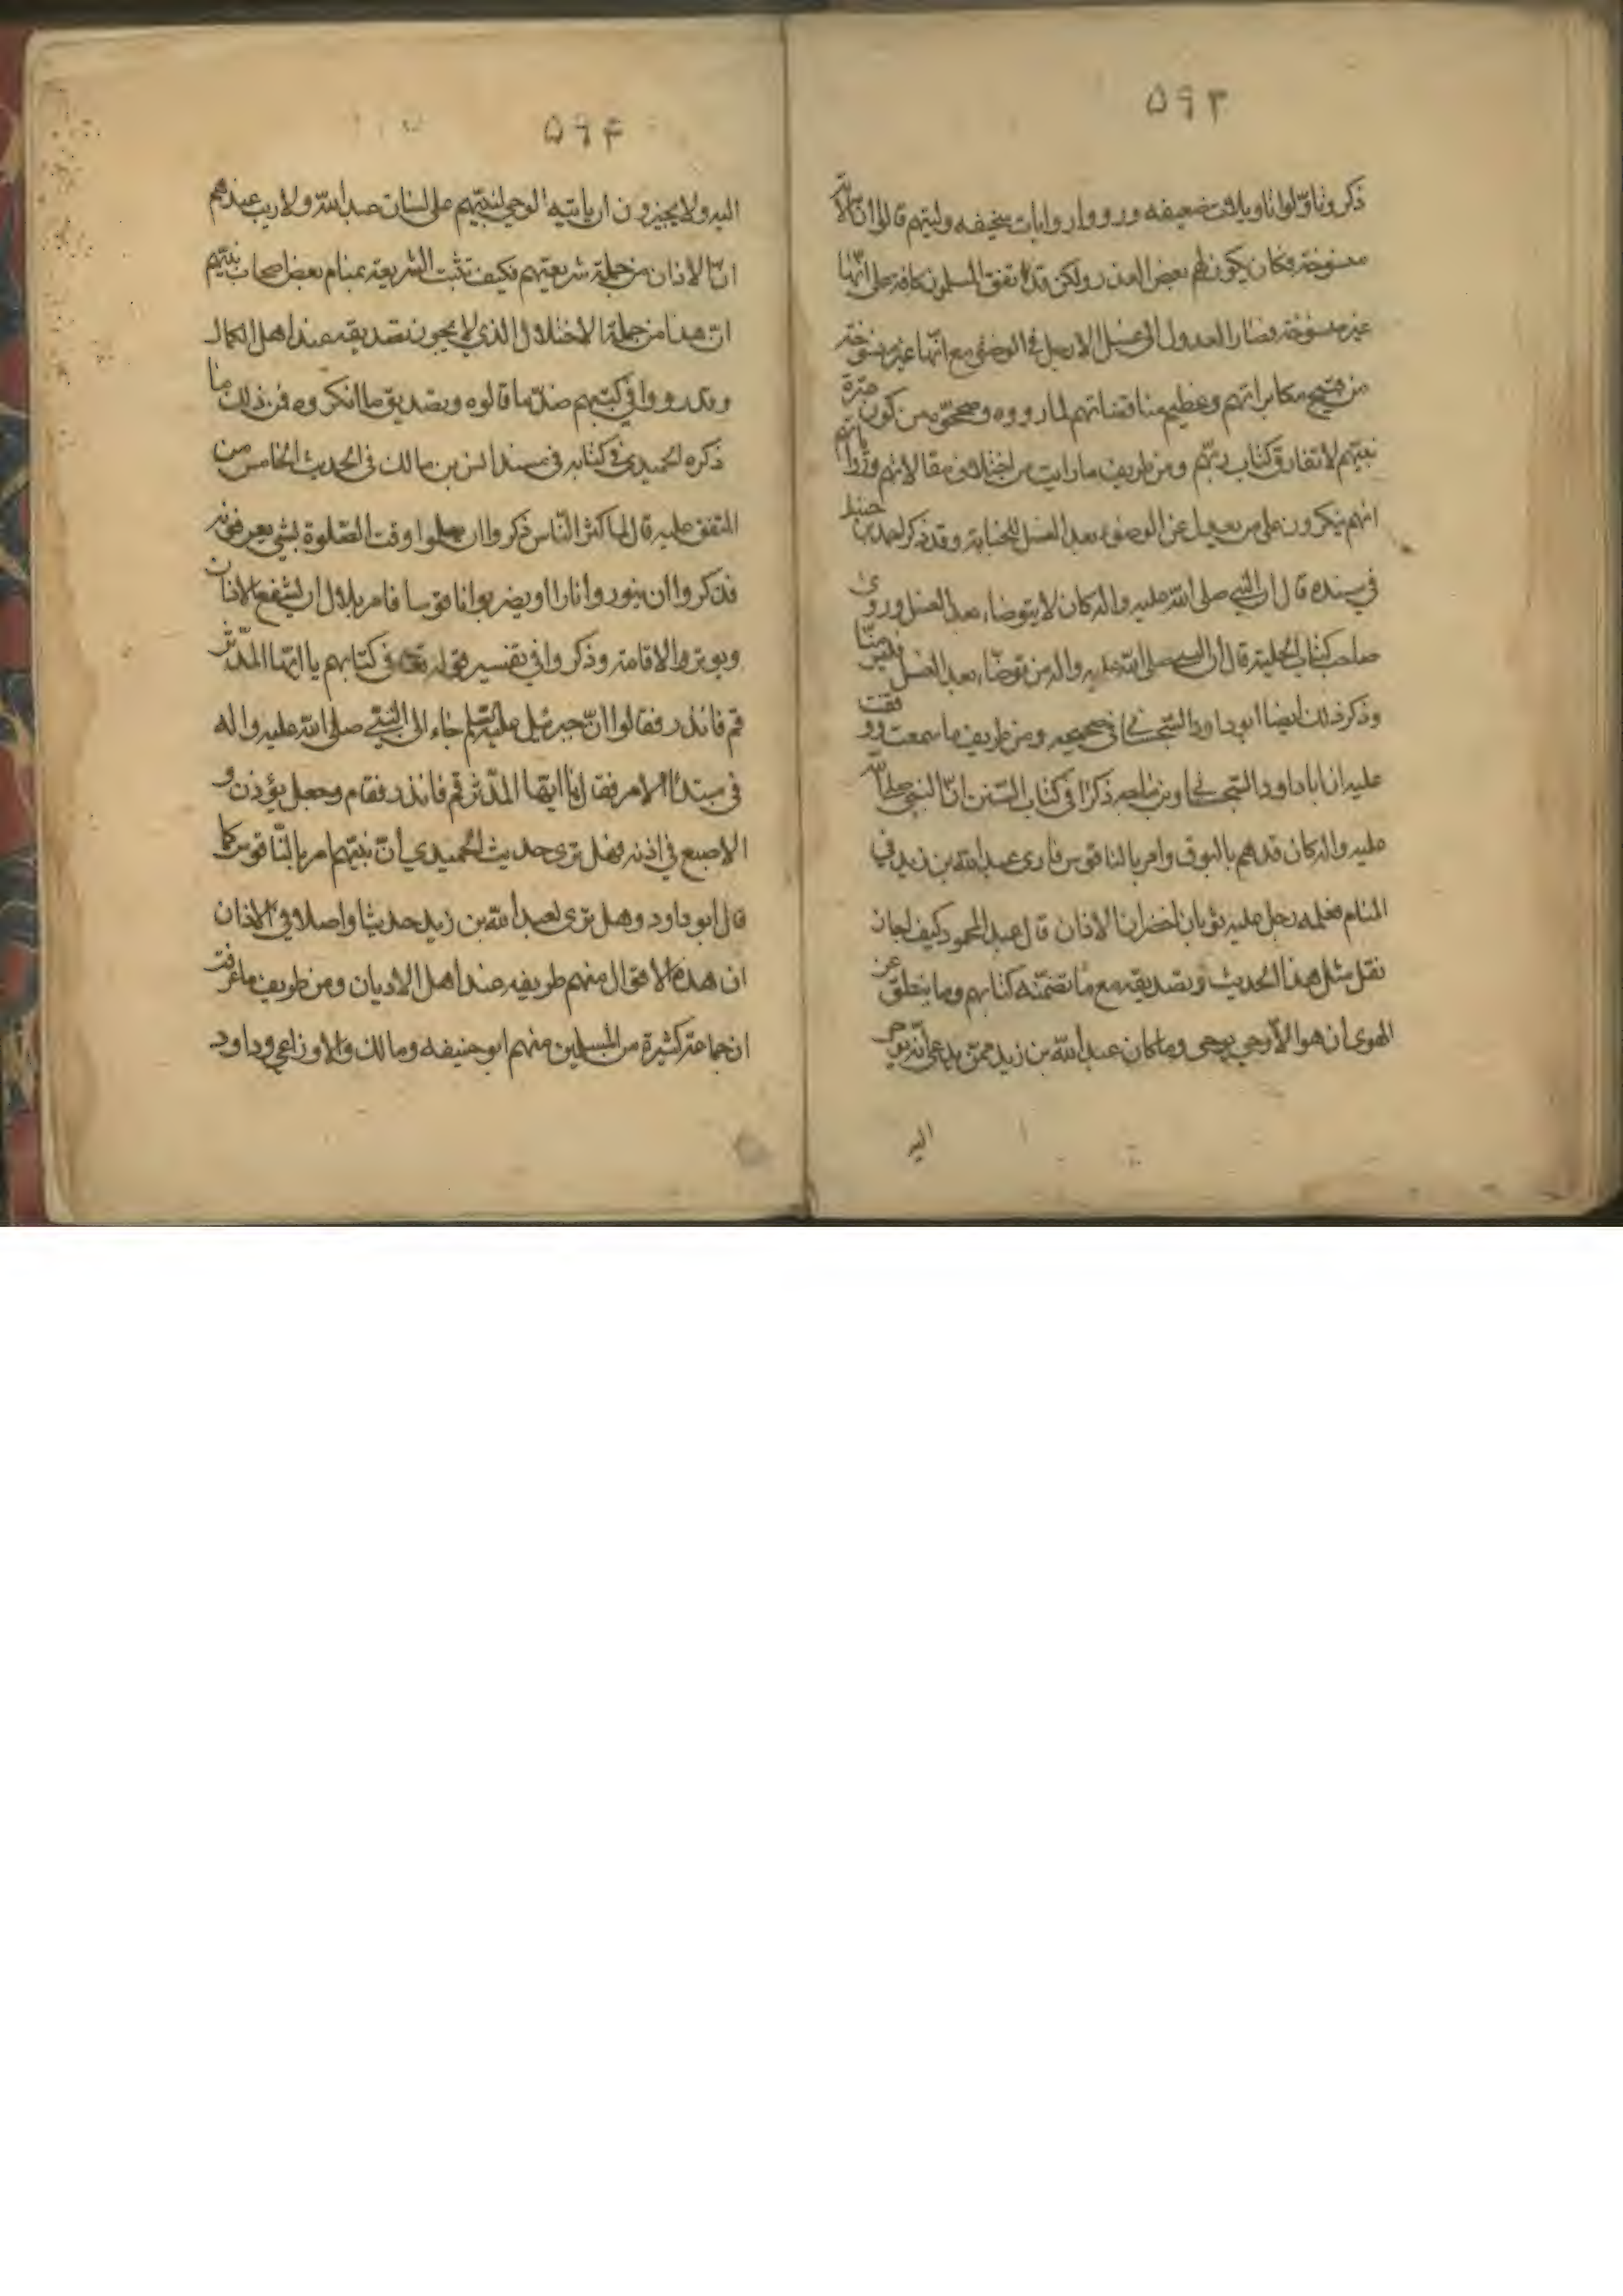 ۵۹۳
ذكروتاوّلوا تاويلات ضعيفه ورووا روايات سخيفه وليتهم قالوا انّ الآية
منسوخة فكان يكون لهم بعض العذر ولكن قد اتفق المسلمون كافة على انّها
غير منسوخة فصار العدول الى غسل الارجل في الوضوء مع انّها غير منسوخة
من قبيح مكابراتهم وعظيم مناقضاتهم لما رووه وصححّوه من كون عترة
نبيّهم لا تفارق كتاب ربّهم ومن طريف ما رايت من اختلاف مقالاتهم ورواياتهم
انهم ينكرون على من يعدل عن الوضوء بعد الغسل للجنابة وقد ذكر احمد بن حنبل
في مسنده قال ان النبي صلى الله عليه واله كان لا يتوضاء بعد الغسل وروى
صاحب كتاب الحلية قال ان النبي صلى الله عليه واله من توضّاء بعد الغسل فليس منّا
وذكر ذلك ايضا ابو داود السّجستاني في صحيحه ومن طريف ما سمعت ووقفت
عليه ان ابا داود السّجستاني وابن ماجه ذكرا في كتاب السّنن انّ النبي صلى الله
عليه واله كان قد هم بالبوق وامر بالناقوس فاري عبد الله بن زيد في
المنام فعلمه رجل عليه ثوبان اخضران الاذان قال عبد المحمود كيف اجاز
نقل مثل هذا الحديث وتصديقه مع ما تضمّنه كتابهم وما ينطق عن
الهوى ان هو الّا وحي يوحى وما كان عبد الله بن زيد ممّن يدعى انّه يوحى
اليه
۵۹۴
اليه ولا يجيزون ان ياتيه الوحي لنبيّهم على لسان عبد الله ولا ريب عندهم
انّ الاذان من جملة شريعتهم فكيف تثبت الشريعة بمنام بعض اصحاب نبيّهم
ان هذا من جملة الاختلال الذي لا يجوز تصديقه عند اهل الكمال
وقد رووا في كتبهم ضدّ ما قالوه وتصديق ما انكروه فمن ذلك ما
ذكره الحميدي في كتابه في مسند انس بن مالك في الحديث الخامس من
المتفق عليه قال لما كثر النّاس ذكروا ان يعلموا وقت الصّلوة بشي يعرفونه
فذكروا ان ينوروا نارا او يضربوا ناقوسا فامر بلال ان يشفع الاذان
ويوتر الاقامة وذكروا في تفسير قوله تعالى في كتابهم يا ايّها المدّثّر
قم فانذر فقالوا انّ جبرئيل عليه السلم جاء الى النبّي صلى الله عليه واله
في مبتدأ الامر فقال يا ايّها المدّثر قم فانذر فقام وجعل يؤذن و
الاصبع في اذنه فهل ترى حديث الحميدي أنّ نبيّهم امر بالنّاقوس كما
قال ابو داود وهل ترى لعبد الله بن زيد حديثا واصلا في الاذان
ان هذه الاقوال منهم طريفه عند اهل الاديان ومن طريف ما عرفت
ان جماعة كثيرة من المسلمين منهم ابو حنيفه ومالك والاوزاعي وداود